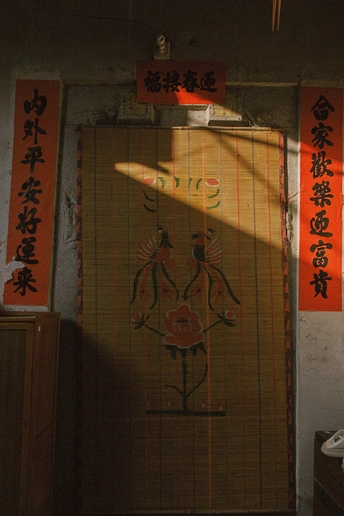 福接春迎
合家歡樂迎富貴
內外平安好運來